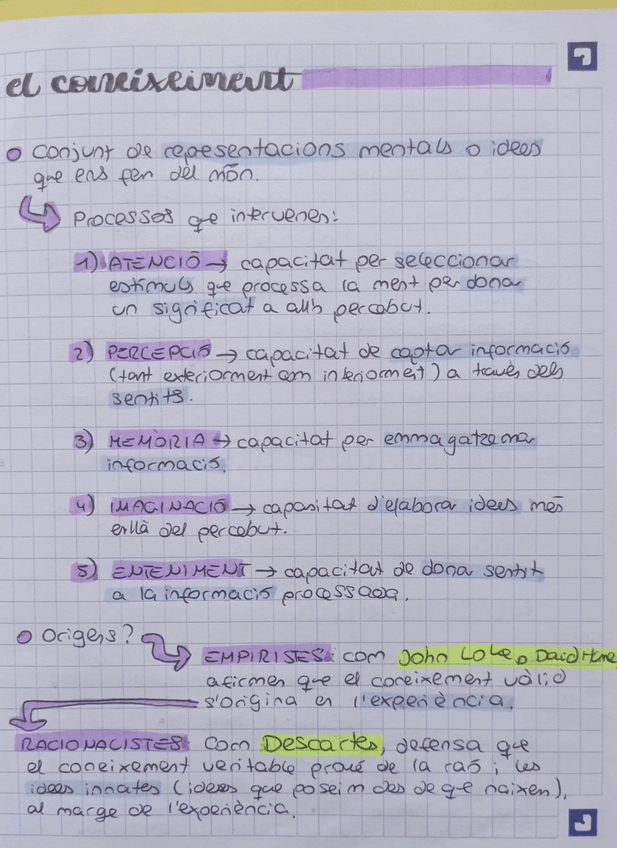 el coneixeiment
Conjunt de representacions mentals o idees
que ens fem del món.
Processos que intervenen:
1) ATENCIÓ → capacitat per seleccionar
estímuls que processa la ment per dona
un significat a allò percebut.
2) PERCEPCIÓ → capacitat de captar informació
(tant exteriorment com interiorment) a través dels
sentits.
3) MEMÒRIA → capacitat per emmagatzemar
informació.
4) IMAGINACIÓ → capacitat d'elabora idees més
enllà del percebut.
5) ENTENIMENT → capacitat de dona sentit
a la informació processada.
Orígens?
EMPIRISTES: com John Loke, David Hume
afirmen que el coneixement vàlid
s'origina en l'experiència.
RACIONALISTES: Com Descartes, defensa que
el coneixement veritable prové de la raó i les
idees innates (idees que poseim des de que naixem),
al marge de l'experiència.